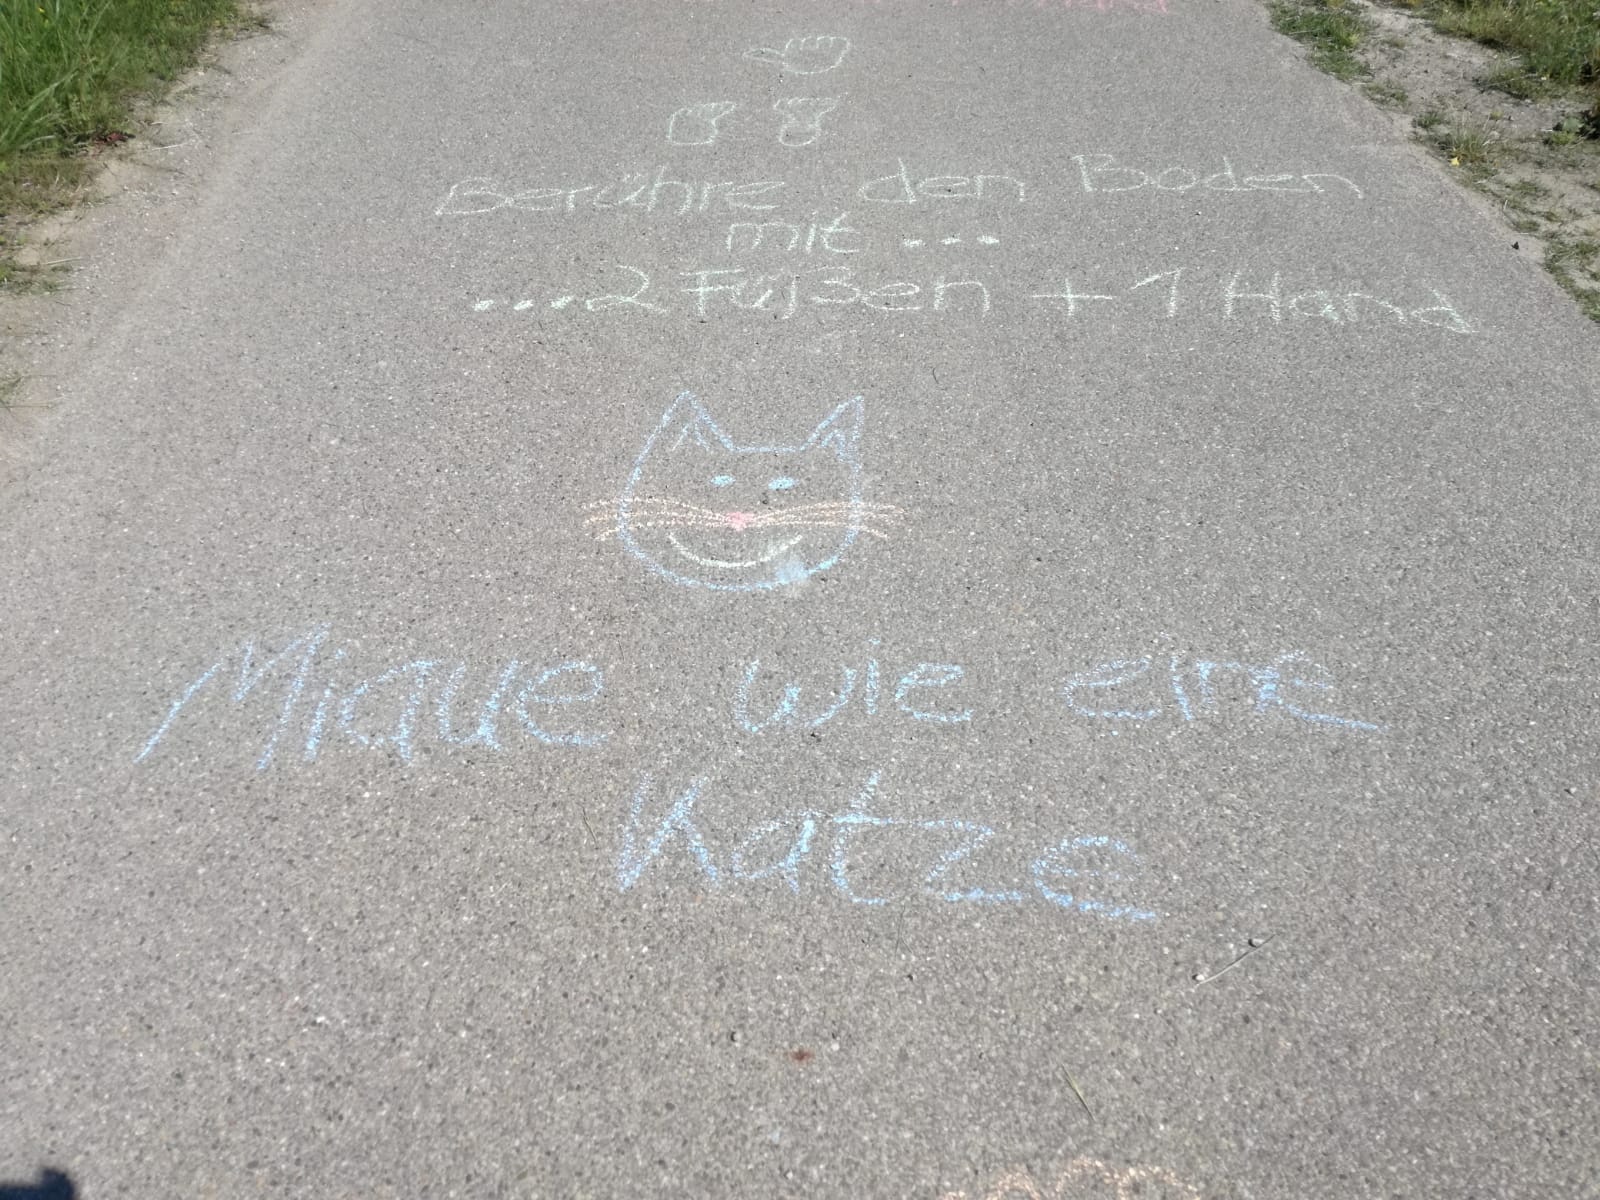 Berühre den Boden
mit ...
...2 Füßen + 1 Hand
Miaue wie eine
Katze